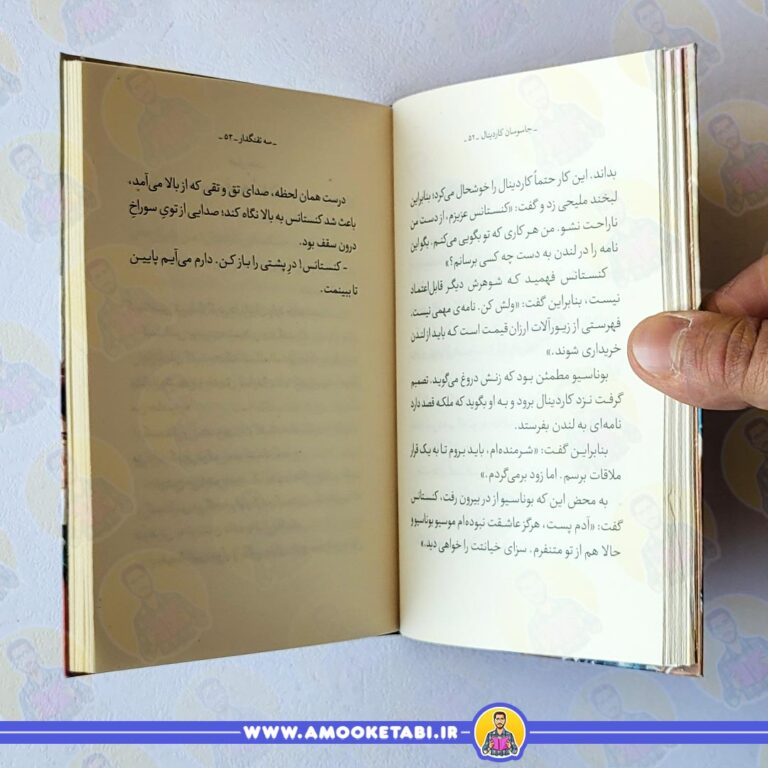 ـ جاسوسان کاردینال ـ ۵۲ ـ
بداند. این کار حتماً کاردینال را خوشحال می‌کرد؛ بنابراین
لبخند ملیحی زد و گفت: «کنستانس عزیزم، از دست من
ناراحت نشو. من هر کاری که تو بگویی می‌کنم. بگو این
نامه را در لندن به دست چه کسی برسانم؟»
کنستانس فهمید که شوهرش دیگر قابل‌اعتماد
نیست، بنابراین گفت: «ولش کن. نامه‌ی مهمی نیست.
فهرستی از زیورآلات ارزان قیمت است که باید از لندن
خریداری شوند.»
بوناسیو مطمئن بود که زنش دروغ می‌گوید. تصمیم
گرفت نزد کاردینال برود و به او بگوید که ملکه قصد دارد
نامه‌ای به لندن بفرستد.
بنابراین گفت: «شرمنده‌ام، باید بروم تا به یک قرار
ملاقات برسم. اما زود برمی‌گردم.»
به محض این که بوناسیو از در بیرون رفت، کنستانس
گفت: «آدم پست، هرگز عاشقت نبوده‌ام موسیو بوناسیو و
حالا هم از تو متنفرم. سزای خیانتت را خواهی دید.»
ـ سه تفنگدار ـ ۵۳ ـ
درست همان لحظه، صدای تق و تقی که از بالا می‌آمد،
باعث شد کنستانس به بالا نگاه کند؛ صدایی از تویِ سوراخِ
درون سقف بود.
- کنستانس! درِ پشتی را باز کن. دارم می‌آیم پایین
تا ببینمت.
WWW.AMOOKETABI.IR